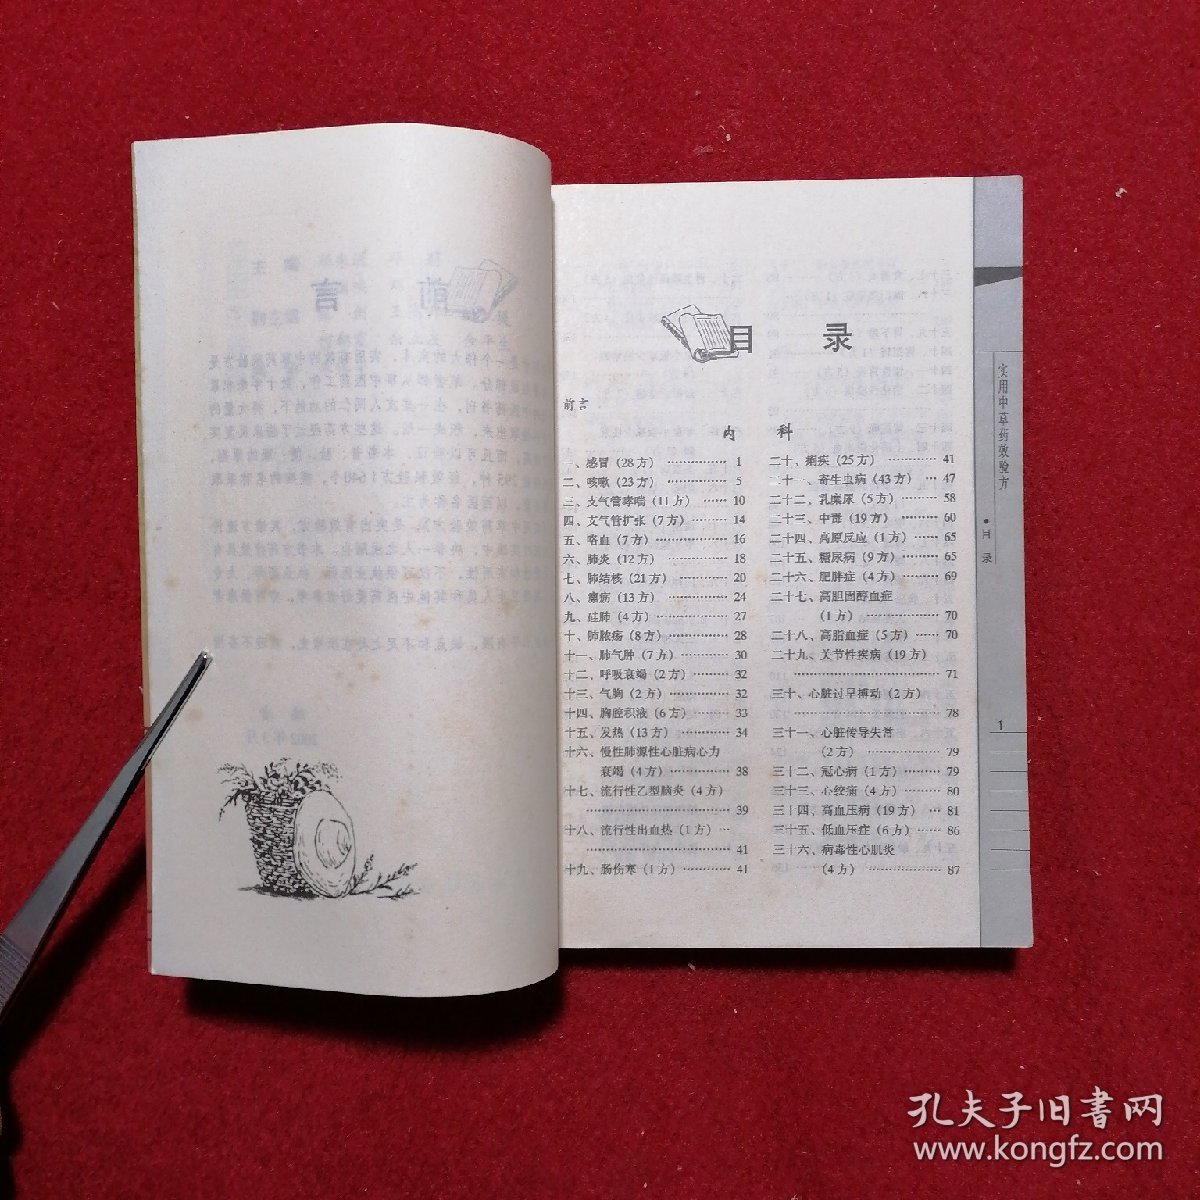 目 录
前言
内 科
一、感冒（28方） 1
二、咳嗽（23方） 5
三、支气管哮喘（11方） 10
四、支气管扩张（7方） 14
五、咯血（7方） 16
六、肺炎（12方） 18
七、肺结核（21方） 20
八、瘰疬（13方） 24
九、硅肺（4方） 27
十、肺脓疡（8方） 28
十一、肺气肿（7方） 30
十二、呼吸衰竭（2方） 32
十三、气胸（2方） 32
十四、胸腔积液（6方） 33
十五、发热（13方） 34
十六、慢性肺源性心脏病心力
衰竭（4方） 38
十七、流行性乙型脑炎（4方）
39
十八、流行性出血热（1方）
41
十九、肠伤寒（1方） 41
二十、痢疾（25方） 41
二十一、寄生虫病（43方） 47
二十二、乳糜尿（5方） 58
二十三、中毒（19方） 60
二十四、高原反应（1方） 65
二十五、糖尿病（9方） 65
二十六、肥胖症（4方） 69
二十七、高胆固醇血症
（1方） 70
二十八、高脂血症（5方） 70
二十九、关节性疾病（19方）
71
三十、心脏过早搏动（2方）
78
三十一、心脏传导失常
（2方） 79
三十二、冠心病（1方） 79
三十三、心绞痛（4方） 80
三十四、高血压病（19方） 81
三十五、低血压症（6方） 86
三十六、病毒性心肌炎
（4方） 87
实用中草药效验方
●目 录
1
孔夫子旧書网
www.kongfz.com